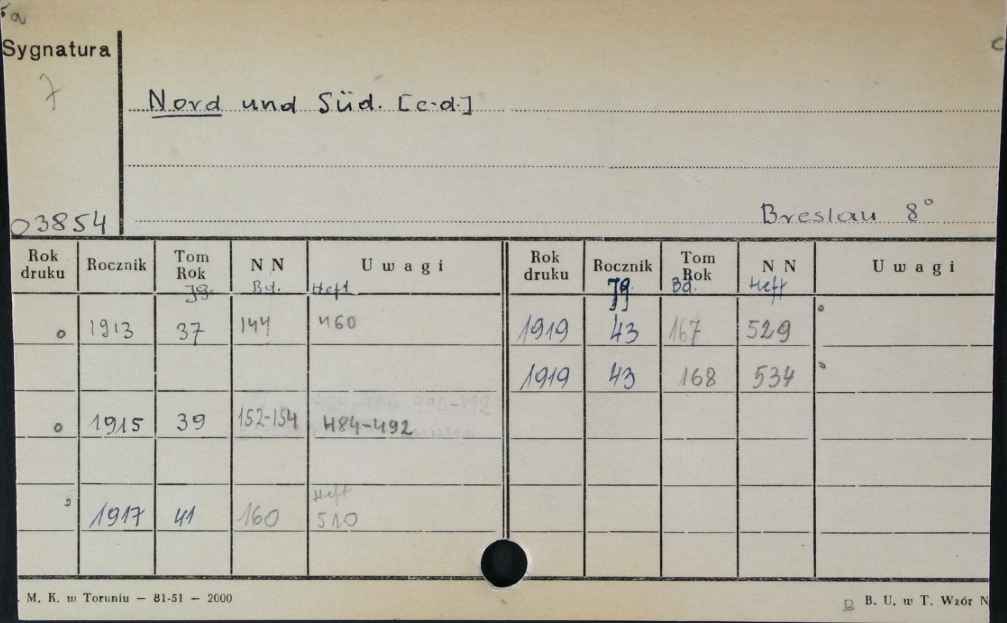 5a
Sygnatura
c
7
Nord und Süd. [c.d.]
03854
Breslau 8°
Rok druku Rocznik Tom Rok N N Uwagi Rok druku Rocznik Tom Rok N N Uwagi
Jg. Bd. Heft Jg. Bd. Heft
1913 37 144 460 1919 43 167 529
1919 43 168 534
1915 39 152-154 484-492
Heft
1917 41 160 510
. M. K. w Toruniu — 81-51 — 2000
B. U. w T. Wzór N